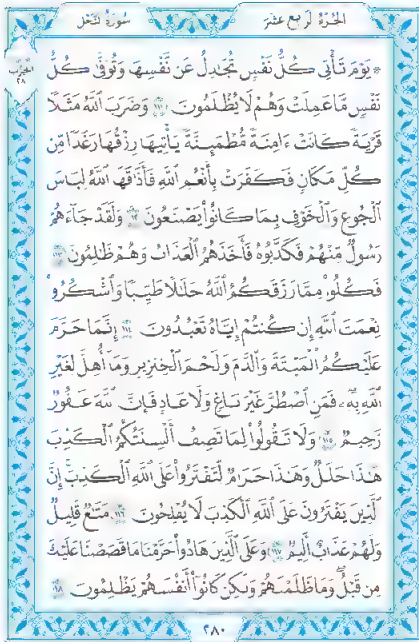 سُورَةُ النَّحْلِ
الجُزْءُ الرَّابِعَ عَشَرَ
الحِزْب ٢٨
۞ يَوْمَ تَأْتِي كُلُّ نَفْسٍ تُجَٰدِلُ عَن نَّفْسِهَا وَتُوَفَّىٰ كُلُّ
نَفْسٍ مَّا عَمِلَتْ وَهُمْ لَا يُظْلَمُونَ ١١١ وَضَرَبَ ٱللَّهُ مَثَلًا
قَرْيَةً كَانَتْ ءَامِنَةً مُّطْمَئِنَّةً يَأْتِيهَا رِزْقُهَا رَغَدًا مِّن
كُلِّ مَكَانٍ فَكَفَرَتْ بِأَنْعُمِ ٱللَّهِ فَأَذَٰقَهَا ٱللَّهُ لِبَاسَ
ٱلْجُوعِ وَٱلْخَوْفِ بِمَا كَانُوا۟ يَصْنَعُونَ ١١٢ وَلَقَدْ جَآءَهُمْ
رَسُولٌ مِّنْهُمْ فَكَذَّبُوهُ فَأَخَذَهُمُ ٱلْعَذَابُ وَهُمْ ظَٰلِمُونَ ١١٣
فَكُلُوا۟ مِمَّا رَزَقَكُمُ ٱللَّهُ حَلَٰلًا طَيِّبًا وَٱشْكُرُوا۟
نِعْمَتَ ٱللَّهِ إِن كُنتُمْ إِيَّاهُ تَعْبُدُونَ ١١٤ إِنَّمَا حَرَّمَ
عَلَيْكُمُ ٱلْمَيْتَةَ وَٱلدَّمَ وَلَحْمَ ٱلْخِنزِيرِ وَمَآ أُهِلَّ لِغَيْرِ
ٱللَّهِ بِهِۦ فَمَنِ ٱضْطُرَّ غَيْرَ بَاغٍ وَلَا عَادٍ فَإِنَّ ٱللَّهَ غَفُورٌ
رَّحِيمٌ ١١٥ وَلَا تَقُولُوا۟ لِمَا تَصِفُ أَلْسِنَتُكُمُ ٱلْكَذِبَ
هَٰذَا حَلَٰلٌ وَهَٰذَا حَرَامٌ لِّتَفْتَرُوا۟ عَلَى ٱللَّهِ ٱلْكَذِبَ إِنَّ
ٱلَّذِينَ يَفْتَرُونَ عَلَى ٱللَّهِ ٱلْكَذِبَ لَا يُفْلِحُونَ ١١٦ مَتَٰعٌ قَلِيلٌ
وَلَهُمْ عَذَابٌ أَلِيمٌ ١١٧ وَعَلَى ٱلَّذِينَ هَادُوا۟ حَرَّمْنَا مَا قَصَصْنَا عَلَيْكَ
مِن قَبْلُ وَمَا ظَلَمْنَٰهُمْ وَلَٰكِن كَانُوٓا۟ أَنفُسَهُمْ يَظْلِمُونَ ١١٨
٢٨٠